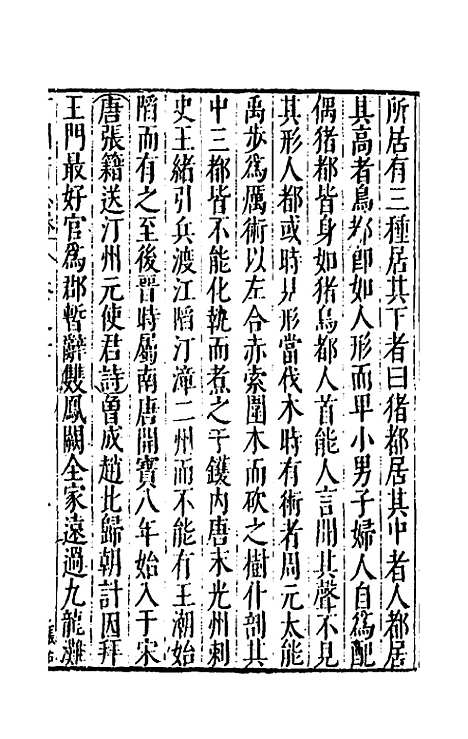 所居有三種居其下者曰猪都居其中者人都居
其高者鳥都卽如人形而卑小男子婦人自爲配
偶猪都皆身如猪鳥都人首能人言聞其聲不見
其形人都或時見形當伐木時有術者周元太能
禹步爲厲術以左合赤索圍木而砍之樹仆剖其
中三都皆不能化執而煮之于鑊内唐末光州刺
史王緒引兵渡江䧟汀漳二州而不能有王潮始
䧟而有之至後晋時屬南唐開寶八年始入于宋
唐張籍送汀州元使君詩曾成趙比歸朝計因拜
王門最好官爲郡暫辭雙鳳闕全家遠過九龍灘